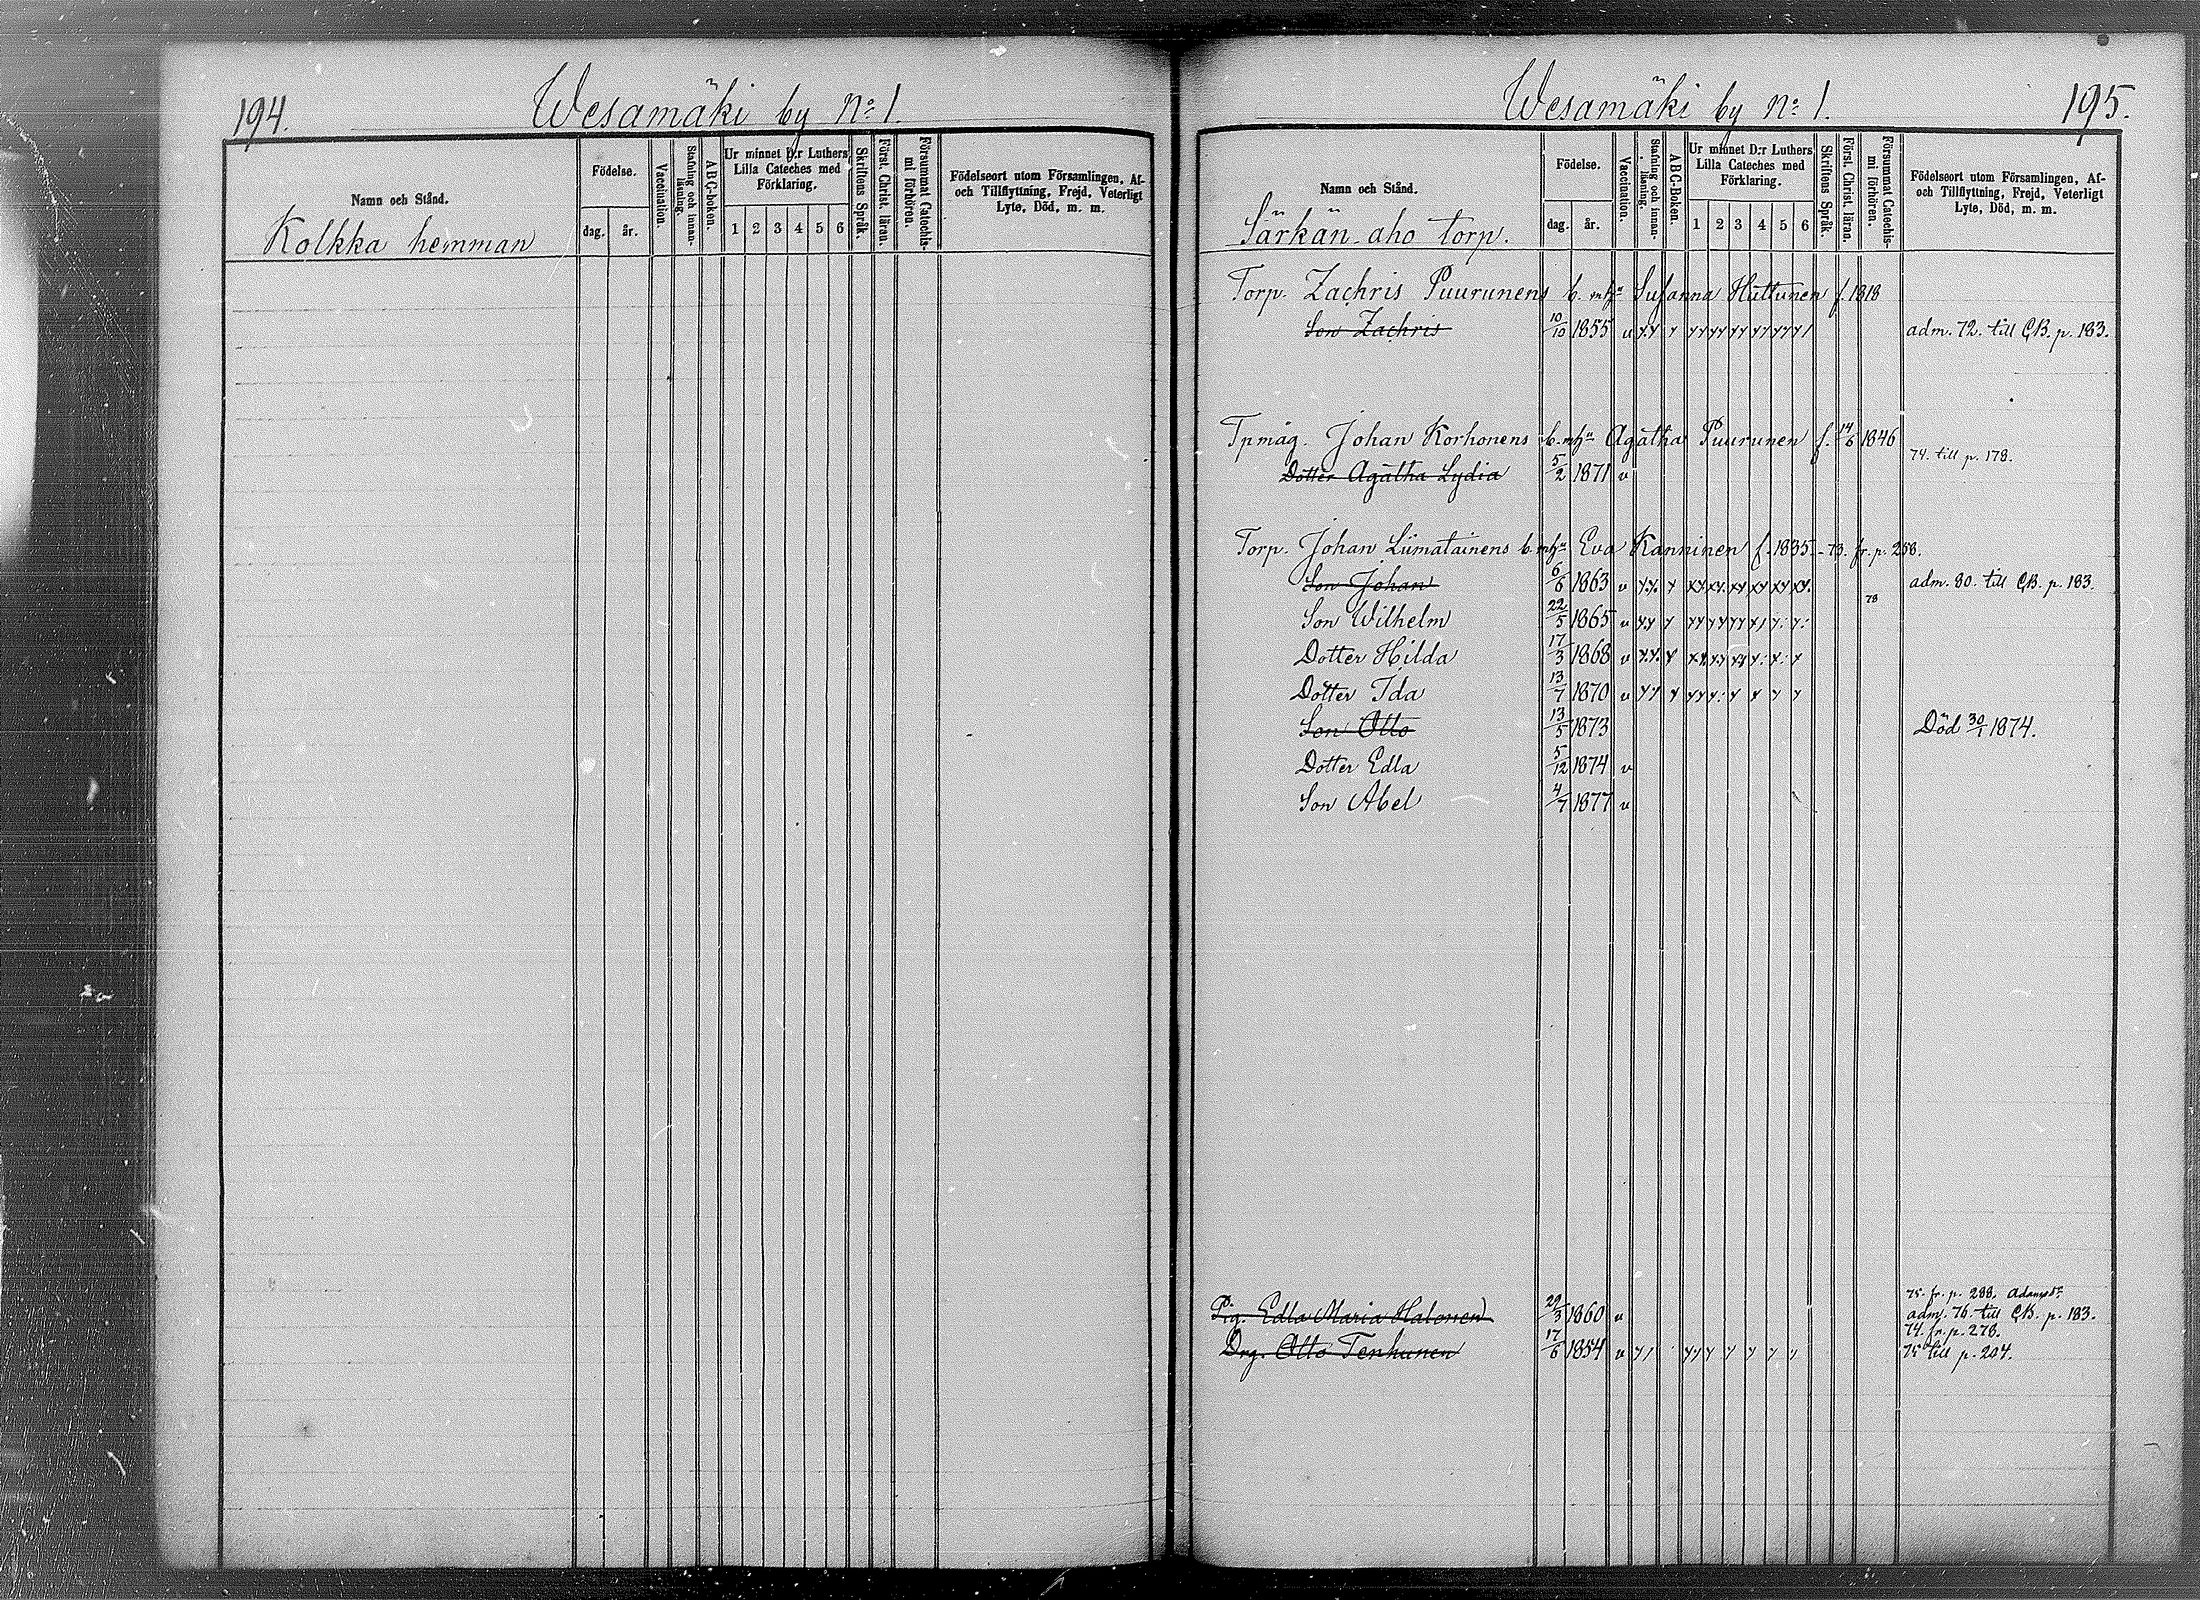 194.
Wesamäki by No 1.
Namn och Stånd.
Födelse.
dag.
år.
Vaccination.
Stafning och innan-läsning.
ABC-boken.
Ur minnet D:r Luthers
Lilla Cateches med
Förklaring.
1 2 3 4 5 6
Skriftens Språk.
Först. Christ. läran.
Försummat Catechis-
mi förhören.
Födelseort utom Församlingen, Af-
och Tillflyttning, Frejd, Veterligt
Lyte, Död, m. m.
Kolkka hemman
Wesamäki by No 1.
195.
Namn och Stånd.
Födelse.
dag.
år.
Vaccination.
Stafning och innan-läsning.
ABC-Boken.
Ur minnet D:r Luthers
Lilla Cateches med
Förklaring.
1 2 3 4 5 6
Skriftens Språk.
Först. Christ. läran.
Försummat Catechis-
mi förhören.
Födelseort utom Församlingen, Af-
och Tillflyttning, Frejd, Veterligt
Lyte, Död, m. m.
Särkän-aho torp.
Torp. Zachris Puurunens b. m. hu Susanna Huttunen f. 1818
Son Zachris 10/10 1855 v adm. 72. till CB. p. 183.
Tpmåg. Johan Korhonens b. m. hu Agatha Puurunen f. 14/6 1846
74. till p. 178.
Dotter Agatha Lydia 5/2 1871 v
Torp. Johan Liimatainens b. m. hu Eva Kanninen f. 1835. - 73. fr. p. 258.
Son Johan 6/6 1863 v adm. 80. till CB. p. 183.
78
Son Wilhelm 22/5 1865 v
Dotter Hilda 17/3 1868 v
Dotter Ida 13/7 1870 v
Son Otto 13/5 1873 Död 30/1 1874.
Dotter Edla 5/12 1874 v
Son Abel 4/7 1877 v
75. fr. p. 288.
Pig. Edla Maria Halonen 29/3 1860 v adm. 76. till CB. p. 183.
74. fr. p. 278.
Drg. Otto Tenhunen 17/6 1854 v 75 till p. 204.